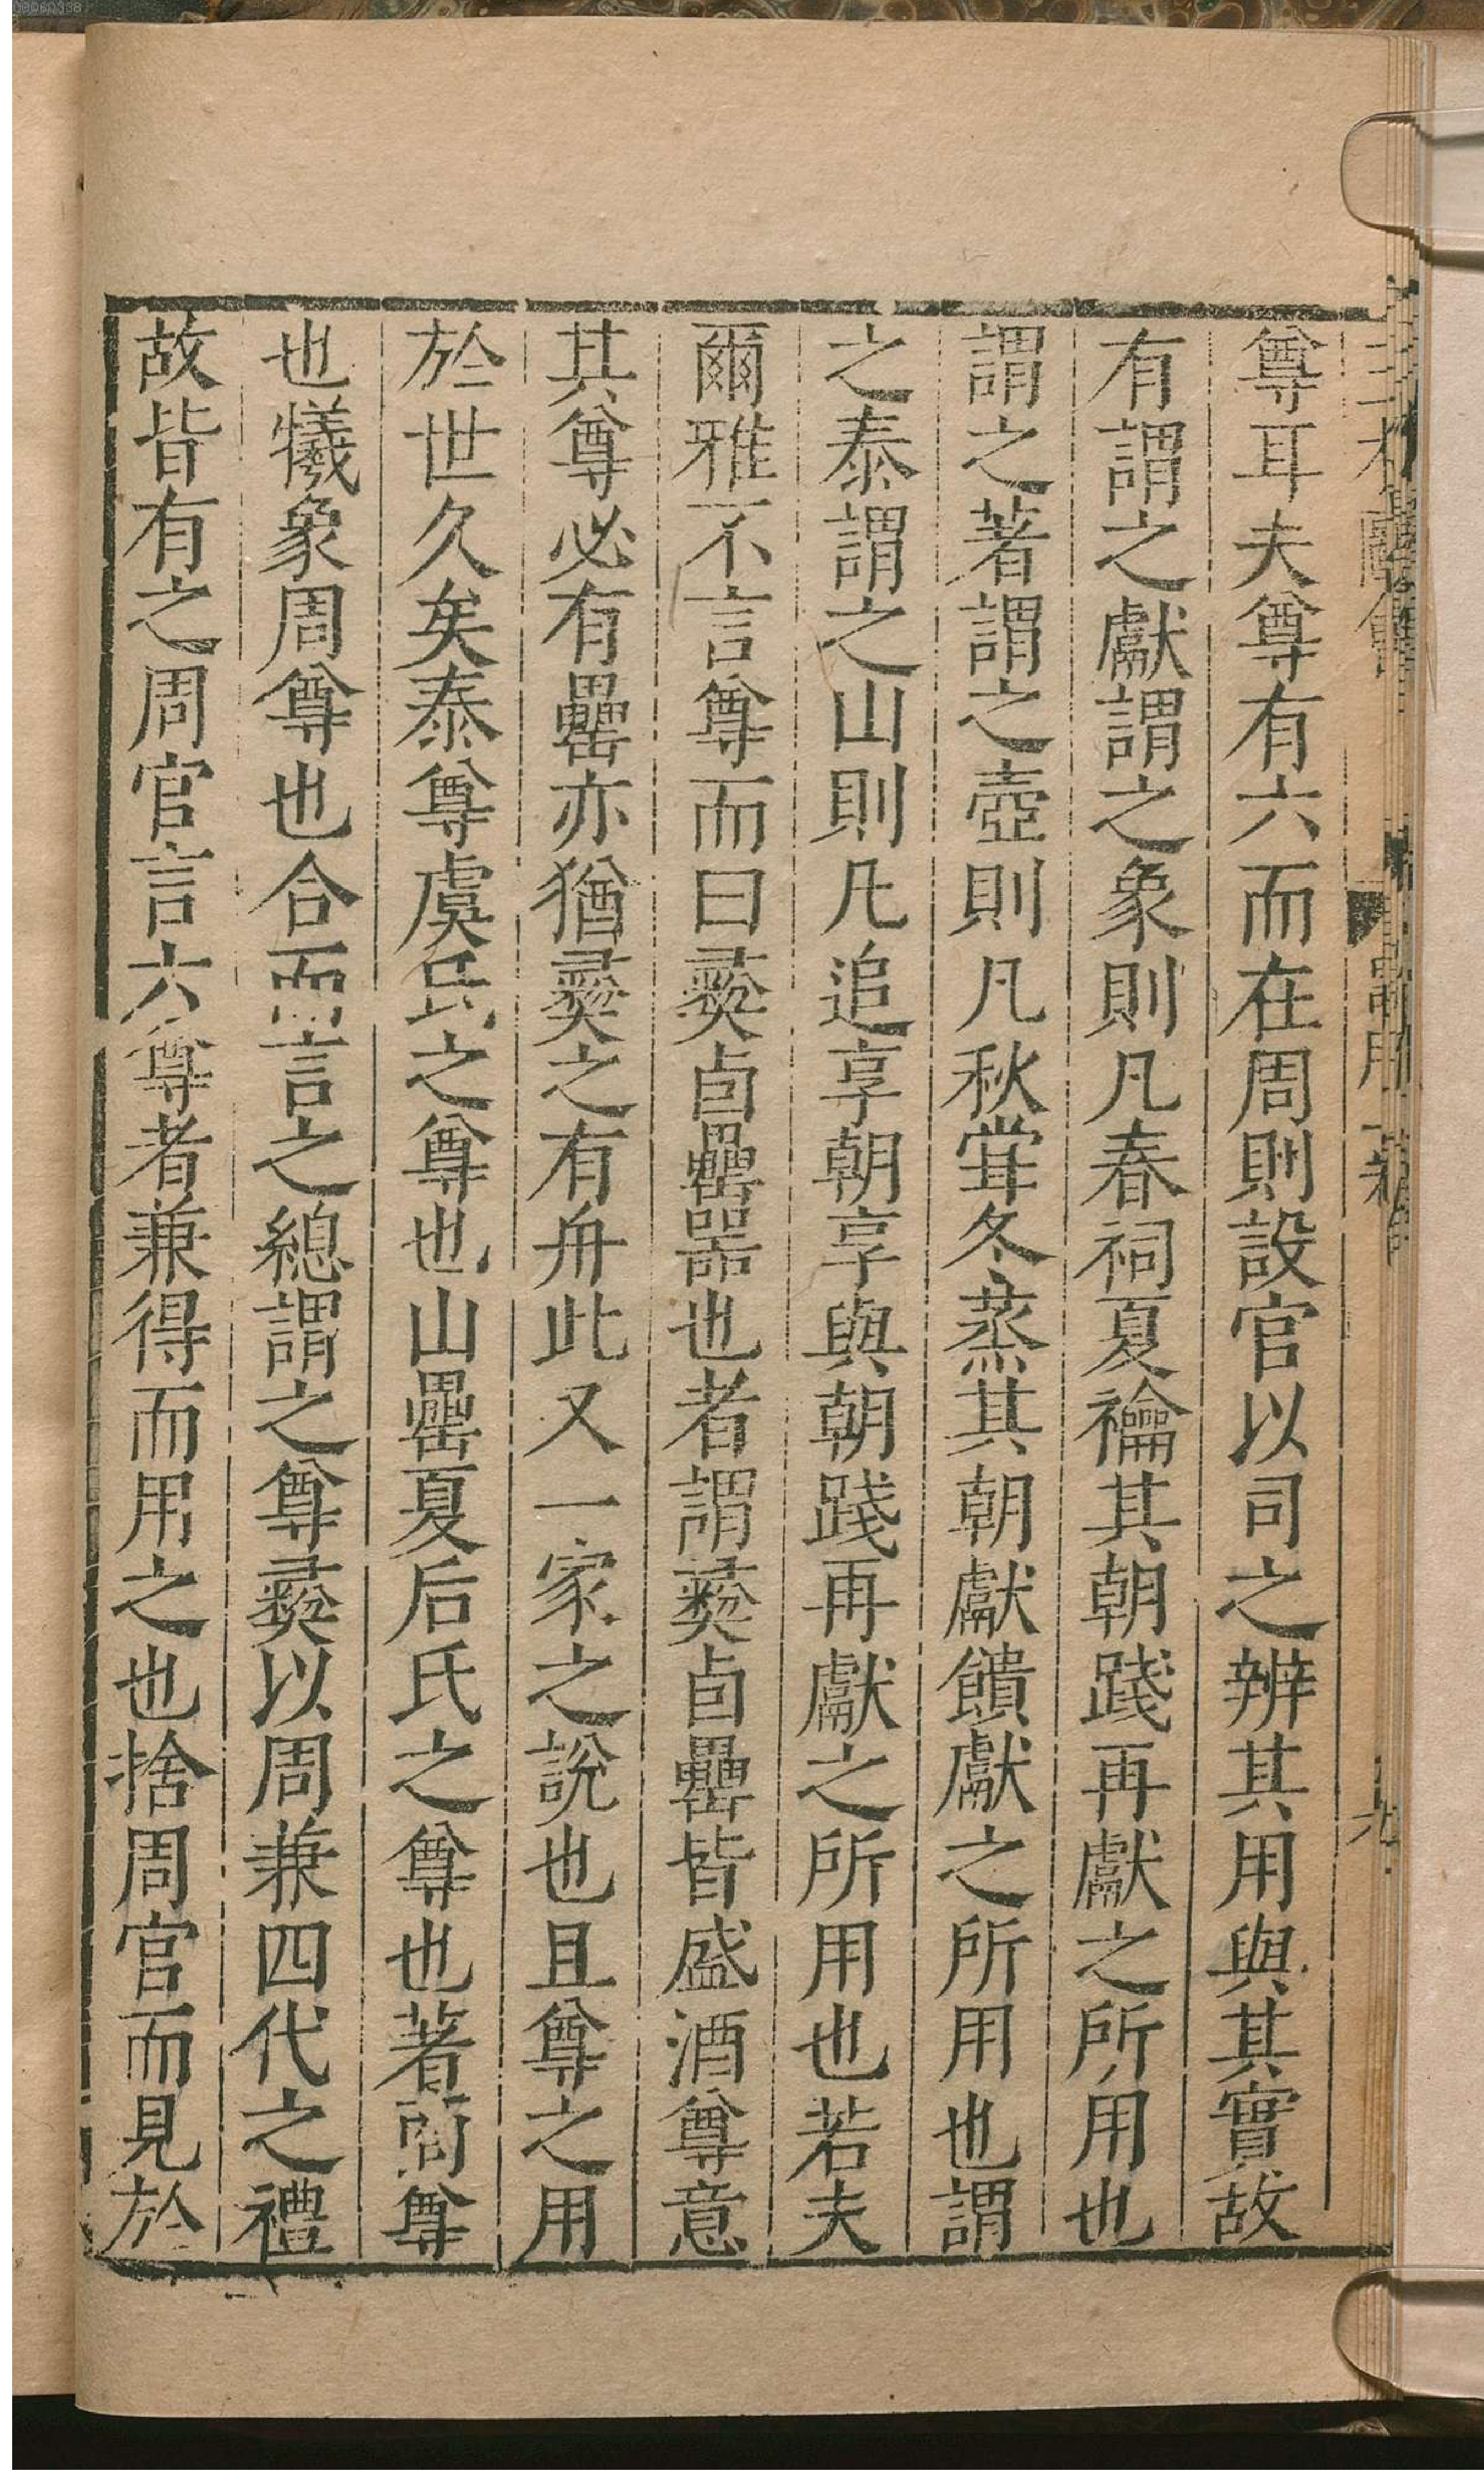 尊耳夫尊有六而在周則設官以司之辨其用與其實故
有謂之獻謂之象則凡春祠夏禴其朝踐再獻之所用也
謂之著謂之壺則凡秋嘗冬蒸其朝獻饋獻之所用也謂
之泰謂之山則凡追享朝享與朝踐再獻之所用也若夫
爾雅不言尊而曰彝卣罍器也者謂彝卣罍皆盛酒尊意
其尊必有罍亦猶彝之有舟此又一家之說也且尊之用
於世久矣泰尊虞氏之尊也山罍夏后氏之尊也著商尊
也犧象周尊也合而言之總謂之尊彝以周兼四代之禮
故皆有之周官言六尊者兼得而用之也捨周官而見於